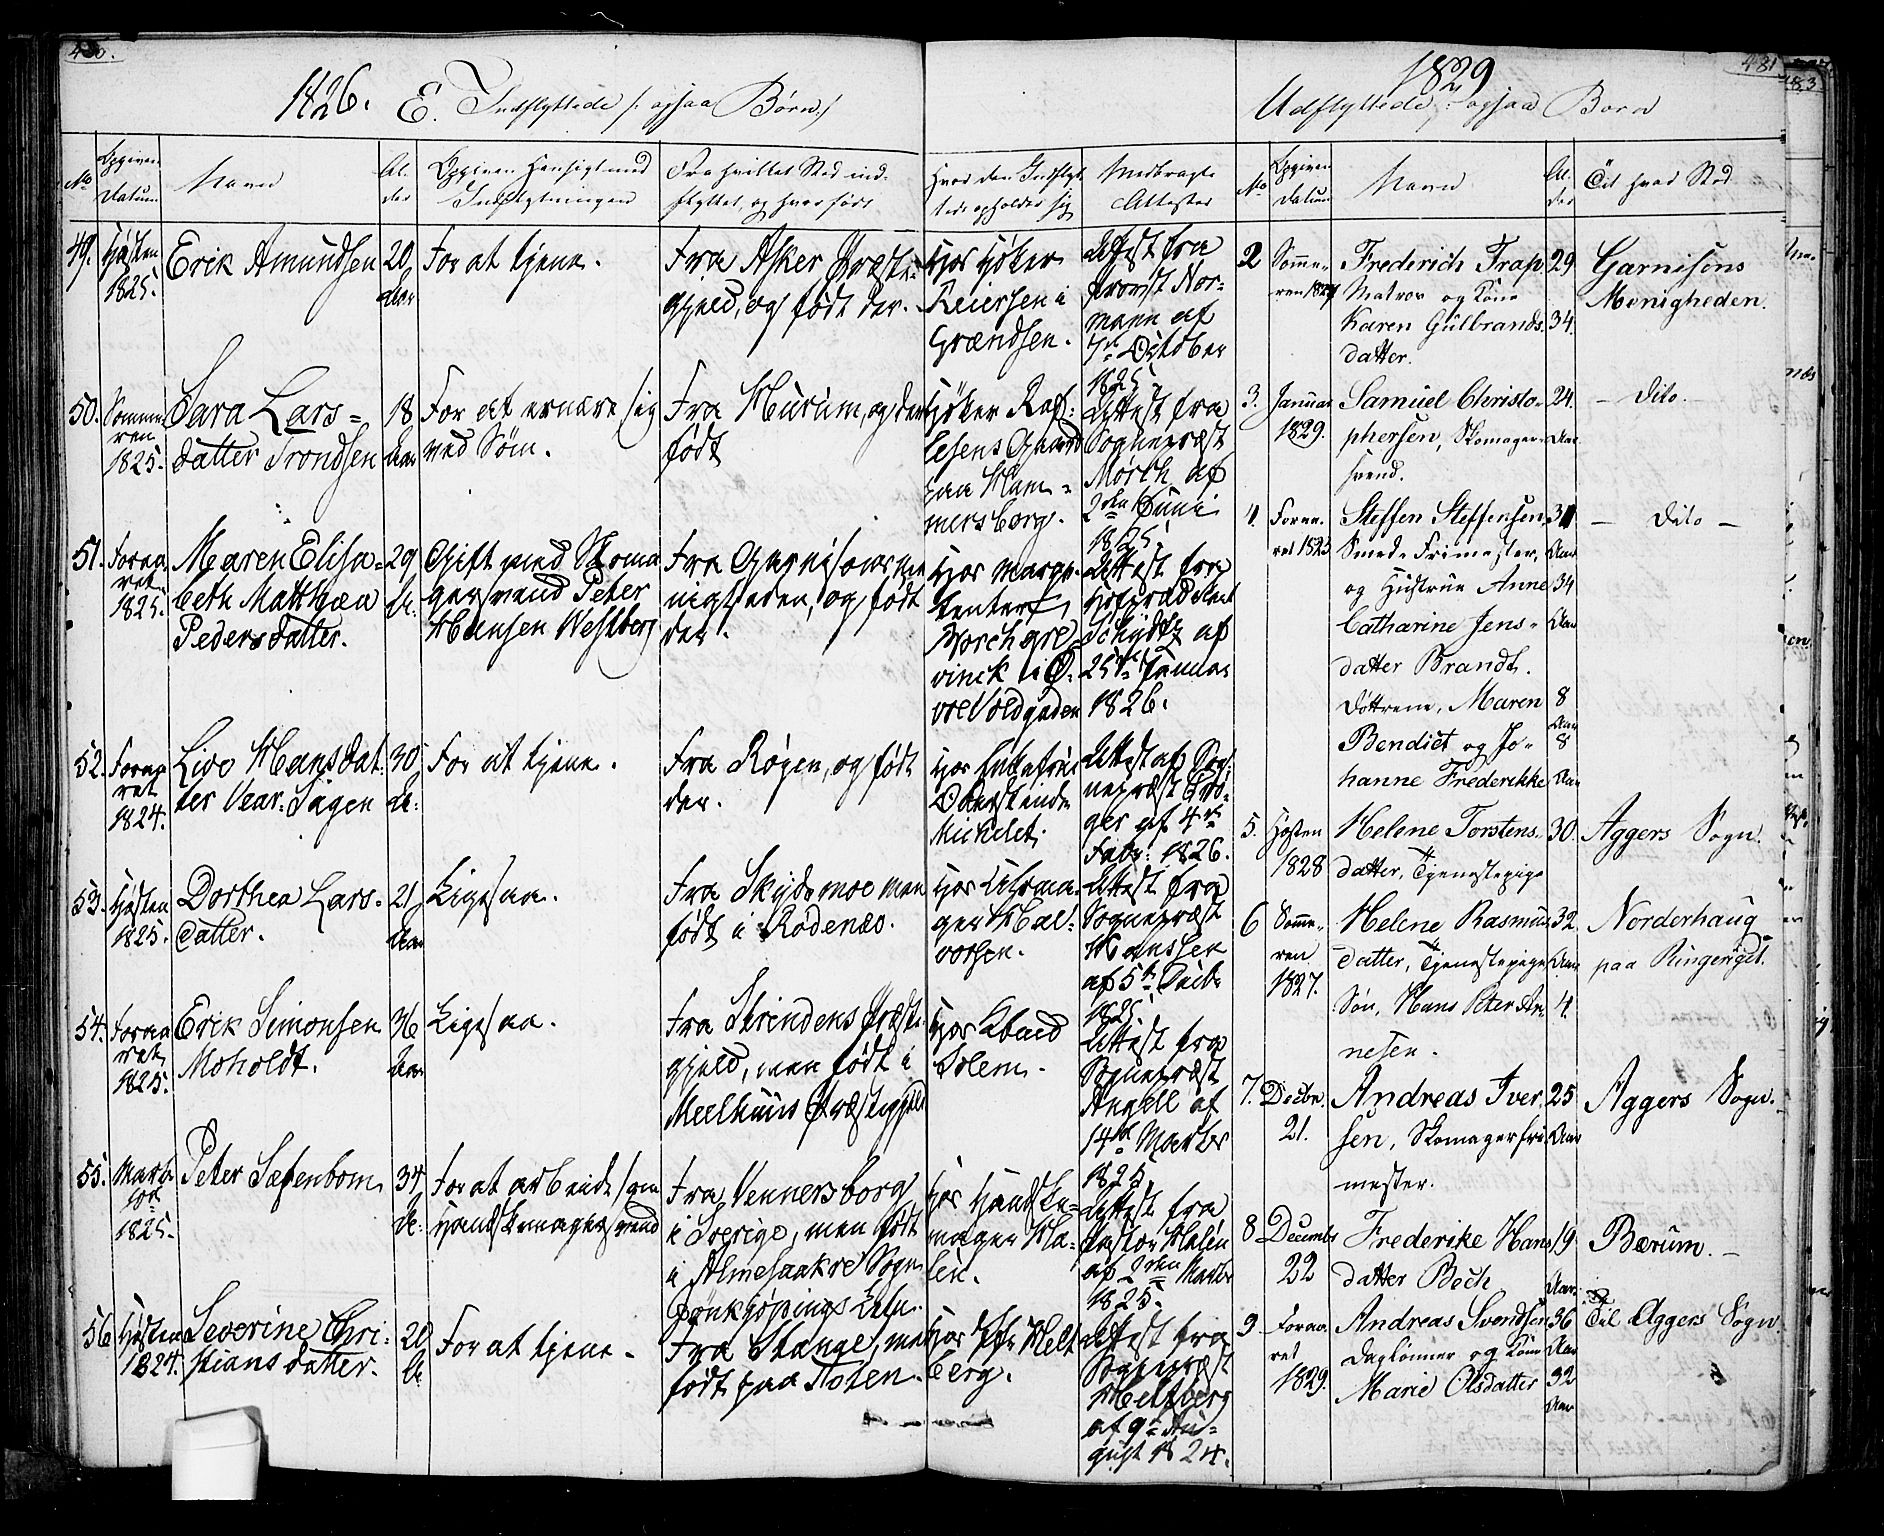 480.
1826. E. Indflyttede /: ogsaa Børn :/
No
Opgiven Datum
Navn
Alder
Opgiven Hensigt med Indflytningen
Fra hvilket Sted indflyttet, og hvor født
Hvor den Indflyttede opholder sig
Medbragte Attester
49. Høsten 1825.
Erik Amundsen
20 Aar
For at tjene.
Fra Asker Præste-
gjeld, og født der.
Hos Høker
Reiersen i
Grændsen.
Attest fra
Provst Nor-
mann af
7de October
1825.
50. Somme-
ren
1825.
Sara Lars-
datter Trondsen
18 Aar
For at ernære sig
ved Søm.
Fra Hurum, og der
født
Høker
Gaard
paa Ham-
mersborg.
Attest fra
Sognepræst
Mørch af
2den Juni
1825.
51. Foraa-
ret
1825.
Maren Elisa-
beth Matthea
Pedersdatter.
29 A:
Gift med Skoma-
gersvend Peter
Hansen Westberg
Fra Garnisons Me-
nigheden, og født
der.
Hos Marqe-
tenter
Borchgre-
vinck i Ø-
vre Voldgaden
Attest fra
Hofprædikant
Schydtz af
25de Januar
1826.
52. Foraa-
ret
1824.
Live Hansdat-
ter Vear-Sagen
30 A:
For at tjene.
Fra Røgen, og født
der.
Hos Enkefrue
Oberstinde
Michelet.
Attest af Sog-
nepræst Crø-
ger af 4de
Febr: 1826.
53. Høsten
1825.
Dorthea Lars-
datter.
21 Aar
Ligesaa.
Fra Skydsmoe men
født i Rødenæs.
Hos Uhrma-
ger Hal-
vorsen.
Attest fra
Sognepræst
Hanssen
af 5te Decbr
1825.
54. Foraa-
ret
1825.
Erik Simonsen
Moholdt.
36 Aar
Ligesaa.
Fra Strindens Præste-
gjeld, men født i
Meelhuus Præstegjeld
Hos
Solem.
Attest fra
Sognepræst
Angell af
14de Marts
1825.
55. Marts
1825.
Peter Sæfenbom
34 A:
For at arbeide som
Handskemagersvend
Fra Vennersborg
i Sverige, men født
i Almesaakre Sogn
Jönkjöpings Lehn.
Hos Handske-
mager Ma-
lin.
Attest fra
Pastor Malin
af 2den Marts
1825.
56 Høsten
1824.
Severine Chri-
stiansdatter.
20 A:
For at tjene.
Fra Stange, men
født paa Toten.
Hos Melt-
berg.
Attest fra
Sognepræst
Meltberg
af 9de Au-
gust 1824.
1829
481
483
Udflyttede, ogsaa Børn
No
Opgiven Datum
Navn
Alder
Til hvad Sted
2 Somme-
ren 1827
Frederich Trap
Matros og Kone
Karen Gulbrands-
datter.
29
34.
Garnisons
Menigheden.
3. Januar
1829.
Samuel Christo-
phersen, Skomager-
svend.
24. Aar
— Dito. —
4. Foraa-
ret 1823
Steffen Steffensen,
Smede Frimester,
og Hustrue Anne
Catharine Jens-
datter Brandt.
Døttrene, Maren
Bendict og Jo-
hanne Frederikke
Aar
34
Aar
8
Aar
8
Aar
— Dito —
5. Høsten
1828
Helene Torstens-
datter, Tjenestepige
30.
Aggers Sogn.
6 Somme-
ren
1827.
Helene Rasmus-
datter, Tjenestepige
Søn, Hans Peter Ar-
nesen.
32.
Aar
4.
Norderhaug
paa Ringeriget.
7. Decbr.
21.
Andreas Iver-
sen, Skomagerfri-
mester.
25
Aar
Aggers Sogn.
8 Decembr
22
Frederike Hans-
datter Bech
19
Aar.
Bærum. —
9 Foraa-
ret
1829.
Andreas Svendsen
Daglønner og Kone
Marie Olsdatter
36
Aar
32
Aar
Til Aggers Sogn.